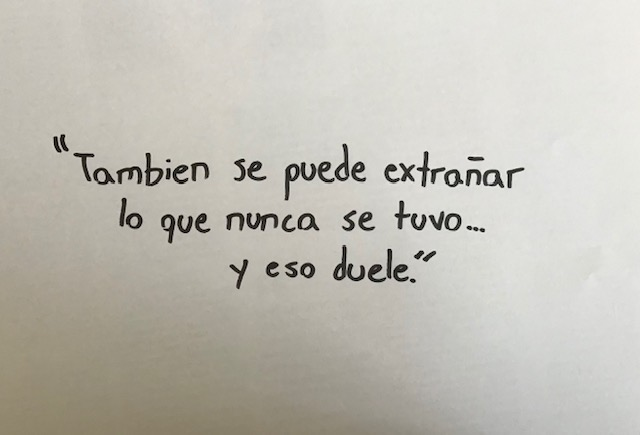 "Tambien se puede extrañar
lo que nunca se tuvo...
y eso duele."